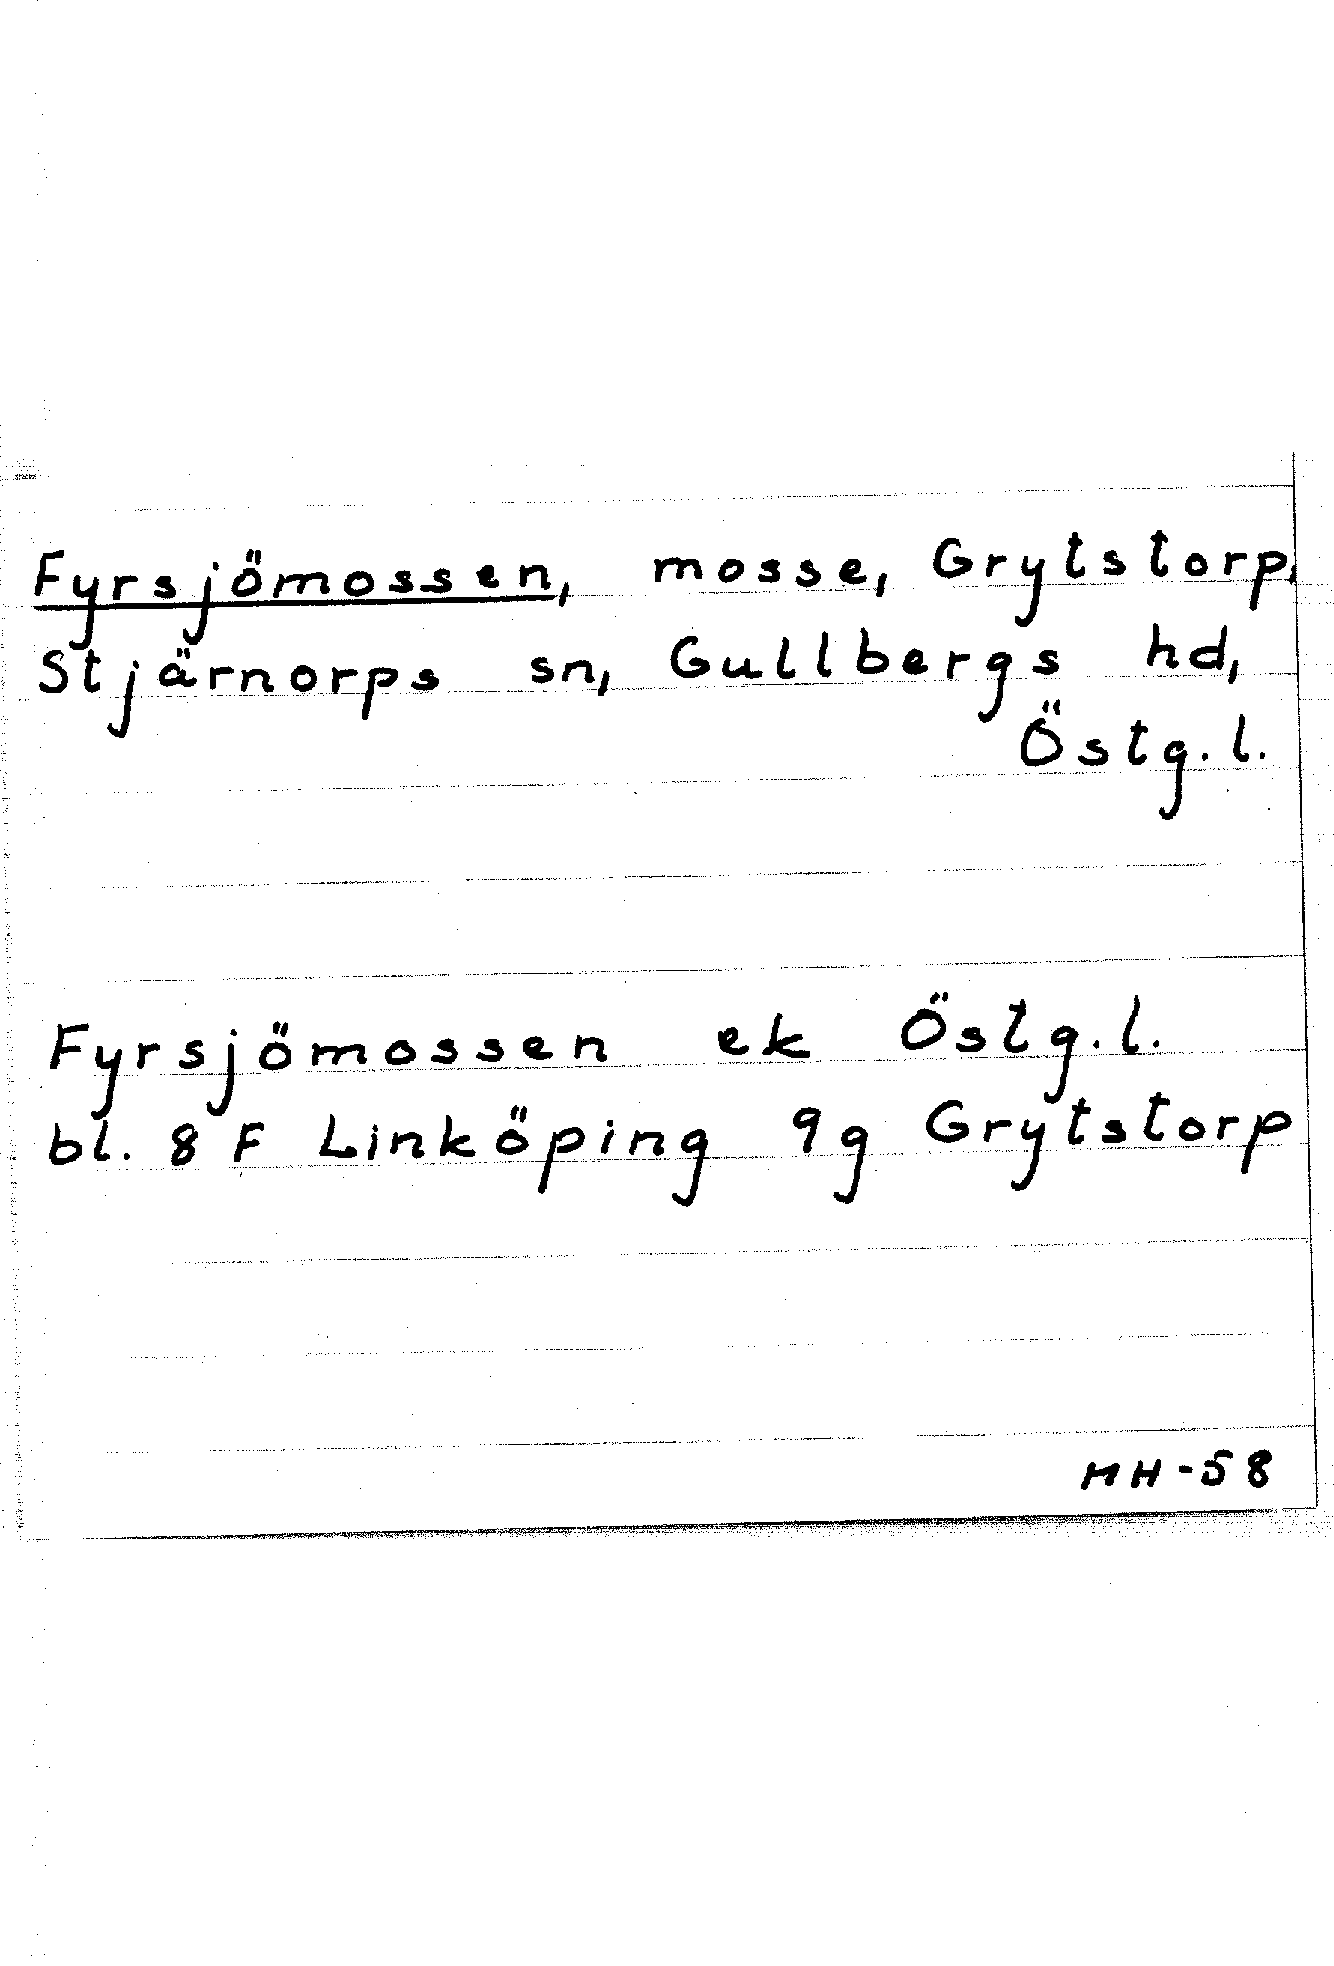 Fyrsjömossen, mosse, Grytstorp,
Stjärnorps sn, Gullbergs hd,
Östg.l.
Fyrsjömossen ek Östg.l.
bl. 8 F Linköping 9g Grytstorp
MH-58